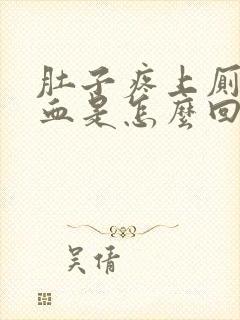 肚子疼上厕
血是怎麼回
吴倩